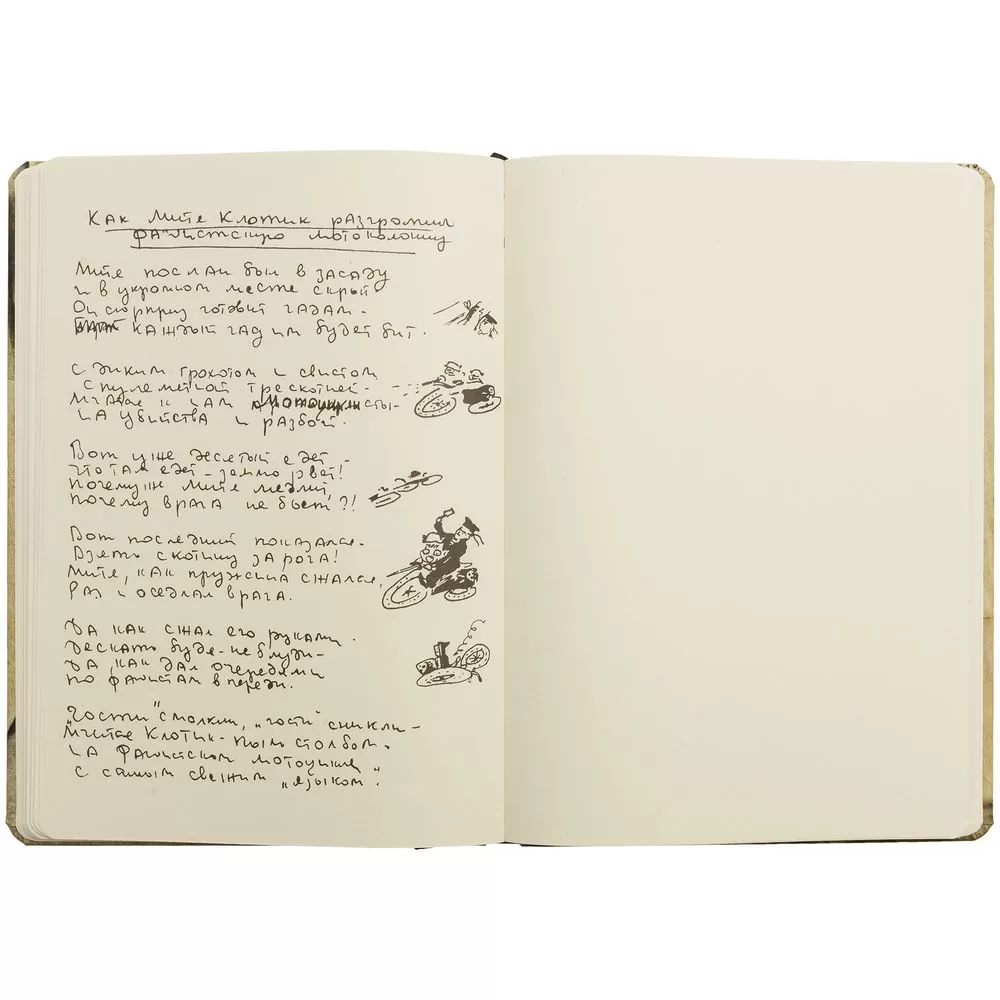 Как Митя Клотик разгромил
фашистскую мотоколонну
Митя послан был в засаду
и в укромном месте скрыт
Он сюрприз готовит гадам -
каждый гад им будет бит.
С диким грохотом и свистом,
с пулеметной трескотней -
Мчатся к нам мотоциклисты -
на убийства и разбой.
Вот уже десятый едет -
что там едет - землю рвет!
Почему ж Митя медлит,
почему врага не бьет?!
Вот последний показался -
Взять скотину за рога!
Митя, как пружина сжался,
Раз и оседлал врага.
Да как сжал его руками -
Дескать будя - не блуди -
Да как дал очередями
по фашистам впереди.
"Гости" смолкли, "гости" сникли -
Мчится Клотик - пыль столбом.
На фашистском мотоцикле
с самым свежим "языком".